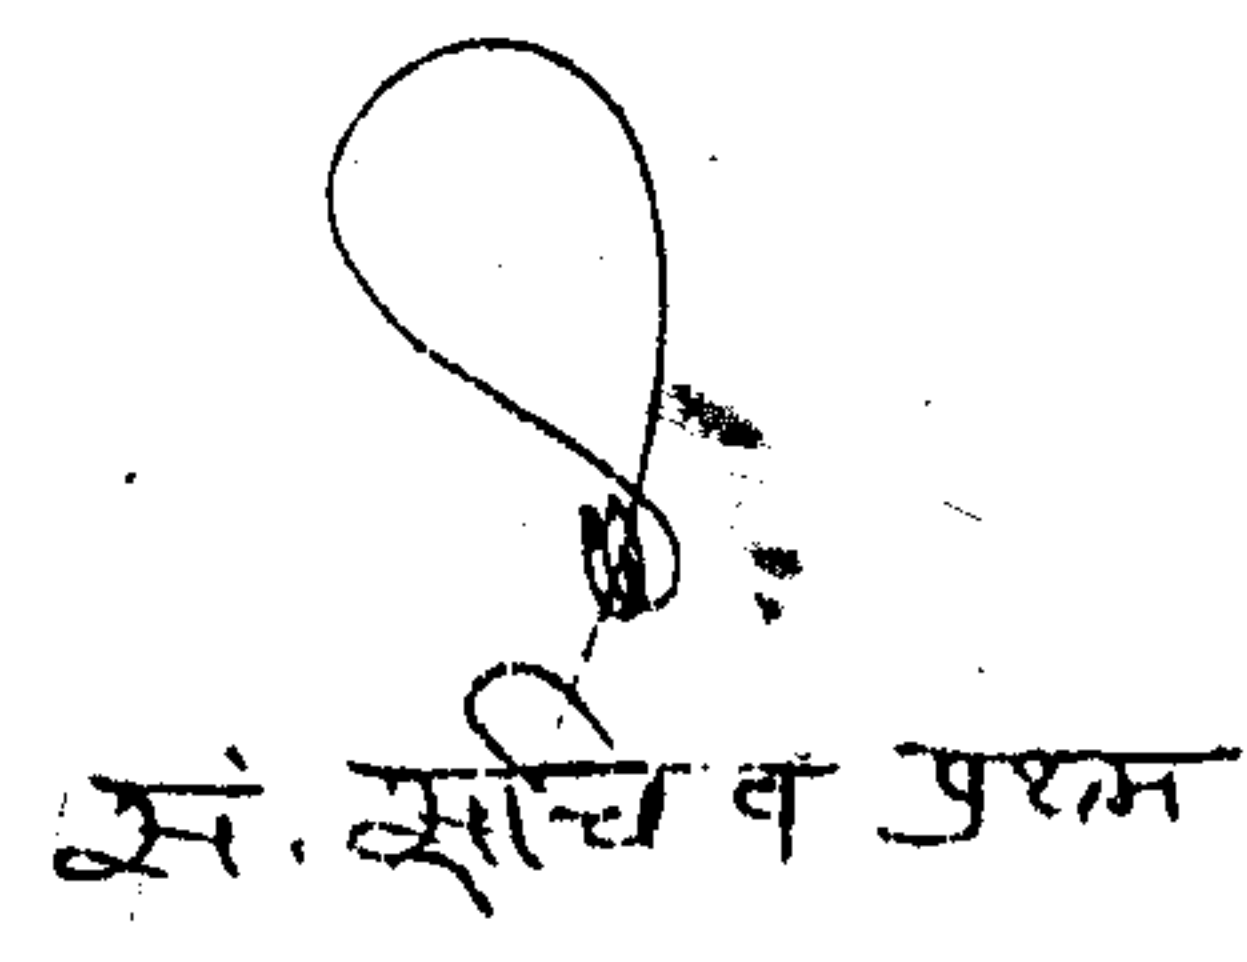 सं. सचिव प्रथम